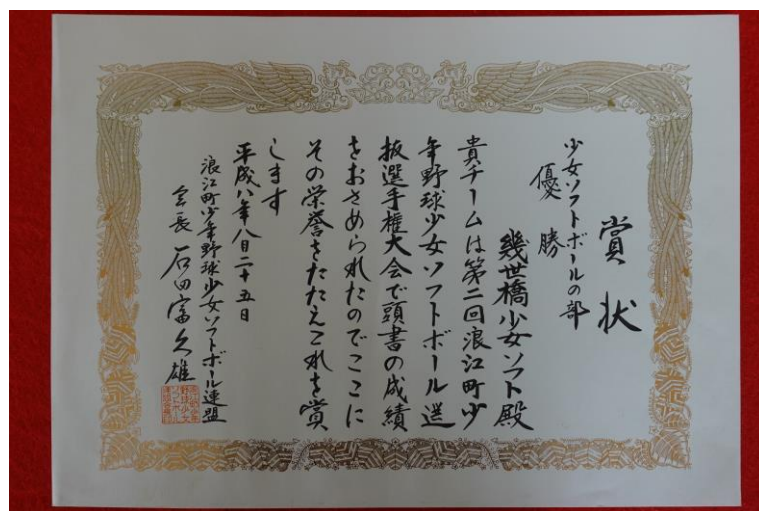 賞状
少女ソフトボールの部
優勝
幾世橋少女ソフト殿
貴チームは第二回浪江町少
年野球少女ソフトボール選
抜選手権大会で頭書の成績
をおさめられたのでここに
その栄誉をたたえこれを賞
します
平成八年八月二十五日
浪江町少年野球少女ソフトボール連盟
会長 石田富久雄